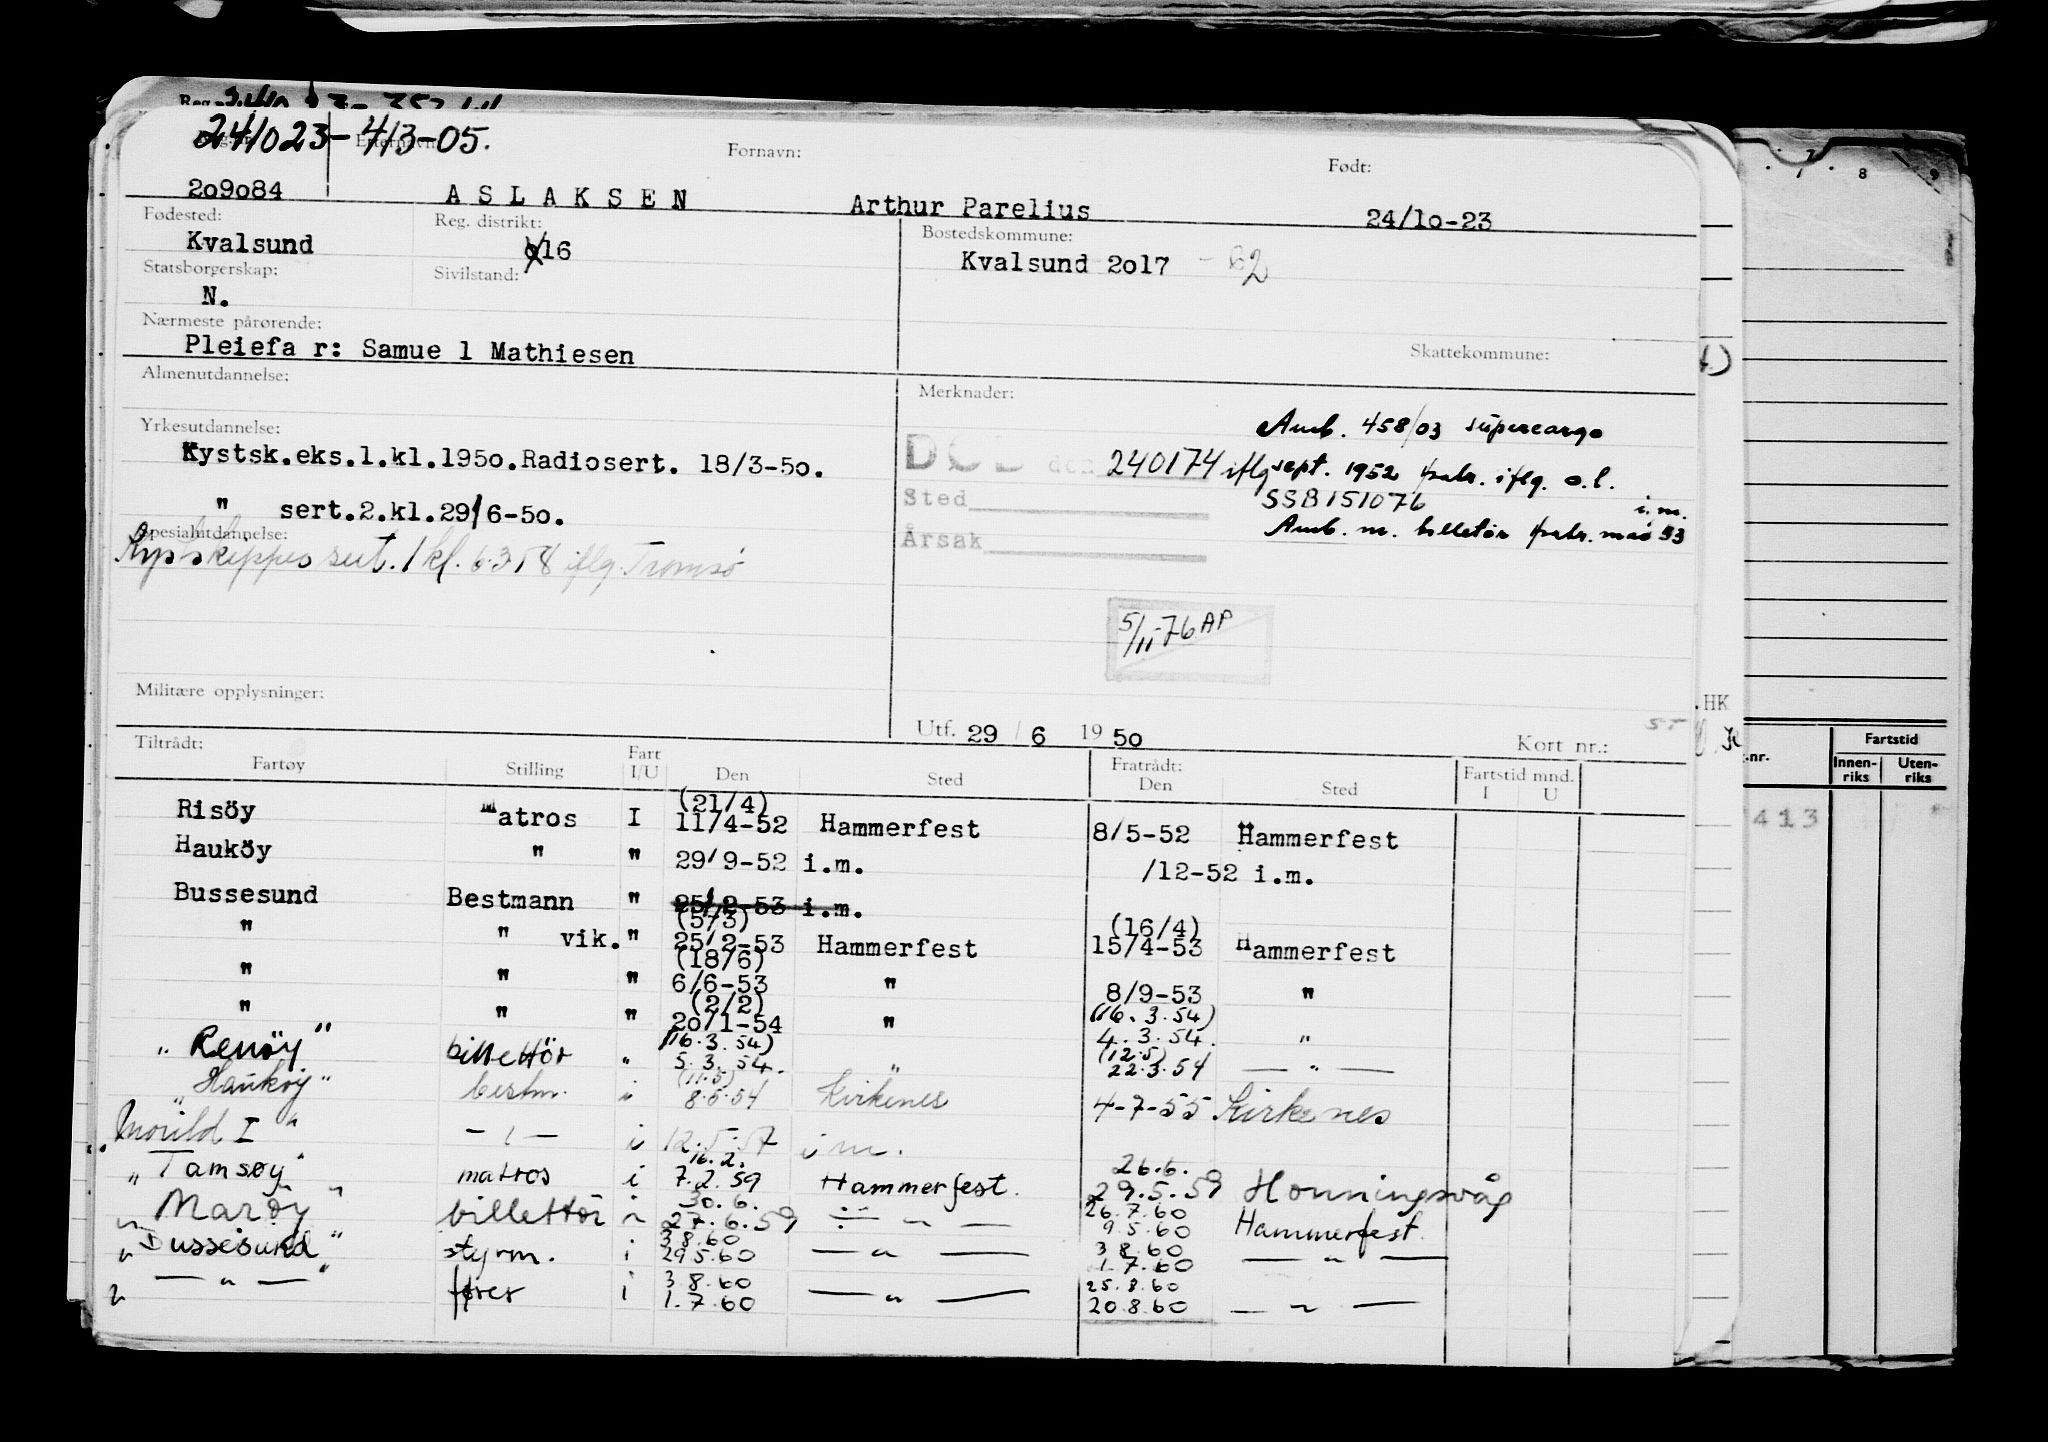 241023-413-05.
Fornavn: Født:
209084 ASLAKSEN Arthur Parelius 24/10-23
Fødested: Reg. distrikt: Bostedskommune:
Kvalsund 16 Kvalsund 2017 - 62
Statsborgerskap: Sivilstand:
N.
Nærmeste pårørende:
Pleiefa r: Samue l Mathiesen Skattekommune:
Almenutdannelse: Merknader:
Yrkesutdannelse: Amb. 458/03 supercargo
Kystsk.eks.1.kl.1950.Radiosert. 18/3-50. DØD den 240174 iflg sept. 1952 fratr. iflg. o.l.
" sert.2.kl.29/6-50. Sted SSB151076 i.m.
Spesialutdannelse: Årsak Amb. m. billetør fratr. mai 53
Kystskippers sert. 1 kl. 6.3.58 iflg. Tromsø
5/11-76 AP
Militære opplysninger:
Utf. 29 / 6 1950 Kort nr.:
Tiltrådt: Fratrådt:
Fartøy Stilling Fart I/U Den Sted Den Sted Fartstid mnd. I U
(21/4)
Risöy Matros I 11/4-52 Hammerfest 8/5-52 Hammerfest
Hauköy " " 29/9-52 i.m. /12-52 i.m.
Bussesund Bestmann " 25/2-53 i.m.
(5/3) (16/4)
" " vik. " 25/2-53 Hammerfest 15/4-53 Hammerfest
(18/6)
" " " 6/6-53 " 8/9-53 "
(2/2) (16.3.54)
" " " 20/1-54 " 4.3.54. "
(16.3.54) (12.5)
"Renöy" billettör " 5.3.54. " 22.3.54 — " —
(11.5)
"Hauköy" bestm. i 8.5.54 Kirkenes 4-7-55 Kirkenes
"Morild I" — " — i 12.5.57 i m.
16.2. 26.6.
"Tamsøy" matros i 7.2.59 Hammerfest. 29.5.59 Honningsvåg
30.6. 26.7.60
"Maröy" billettör " 27.6.59 — " — 9.5.60 Hammerfest.
3.8.60 3.8.60
"Bussesund" styrm. i 29.5.60 — " — 1.7.60 — " —
3.8.60 25.8.60
" — " — " fører i 1.7.60 — " — 20.8.60 — " —
7 8 9
.HK
.nr. Fartstid
Innen-riks Uten-riks
413